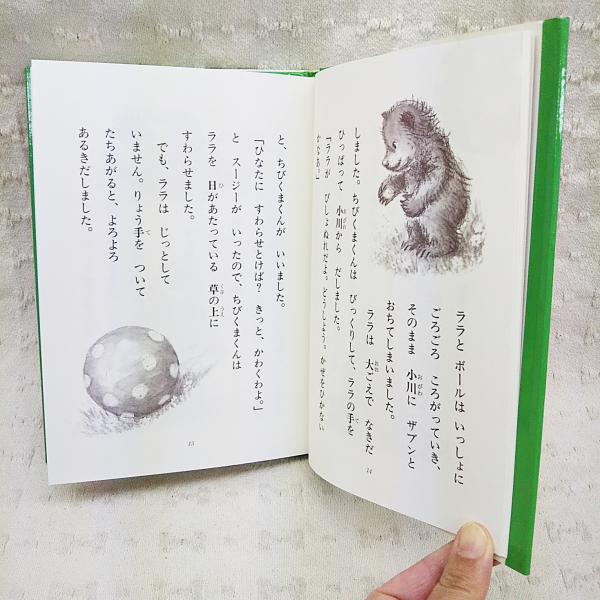 ララと ボールは いっしょに
ごろごろ ころがっていき、
そのまま 小川に ザブンと
おちてしまいました。
ララは 大ごえで なきだ
しました。ちびくまくんは びっくりして、ララの手を
ひっぱって 小川から だしました。
「ララが びしょぬれだよ。どうしよう。かぜをひかない
かなあ。」
14
と、ちびくまくんが いいました。
「ひなたに すわらせとけば? きっと、かわくわよ。」
と スージーが いったので、ちびくまくんは
ララを 日があたっている 草の上に
すわらせました。
でも、ララは じっとして
いません。りょう手を ついて
たちあがると、よろよろ
あるきだしました。
15